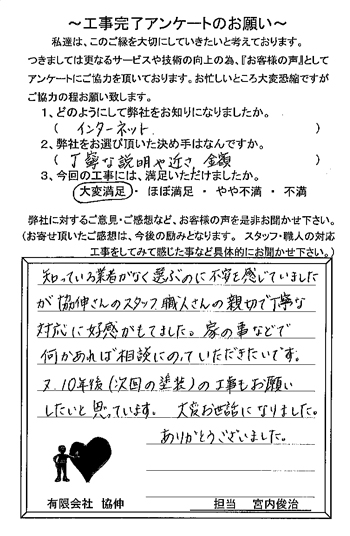 ～工事完了アンケートのお願い～
私達は、このご縁を大切にしていきたいと考えております。
つきましては更なるサービスや技術の向上の為、『お客様の声』として
アンケートにご協力を頂いております。お忙しいところ大変恐縮ですが
ご協力の程お願い致します。
1、どのようにして弊社をお知りになりましたか。
( インターネット )
2、弊社をお選び頂いた決め手はなんですか。
( 丁寧な説明や近さ 金額 )
3、今回の工事には、満足いただけましたか。
大変満足 ・ ほぼ満足 ・ やや不満 ・ 不満
弊社に対するご意見・ご感想など、お客様の声を是非お聞かせ下さい。
(お寄せ頂いたご感想は、今後の励みとなります。 スタッフ・職人の対応
工事をしてみて感じた事など具体的にお聞かせ下さい。)
知っている業者がなく選ぶのに不安を感じていました
が協伸さんのスタッフ職人さんの親切で丁寧な
対応に好感がもてました。家の事などで
何かあれば相談にのっていただきたいです。
又、10年後(次回の塗装)の工事もお願い
したいと思っています。 大変お世話になりました。
ありがとうございました。
有限会社 協伸
担当 宮内俊治